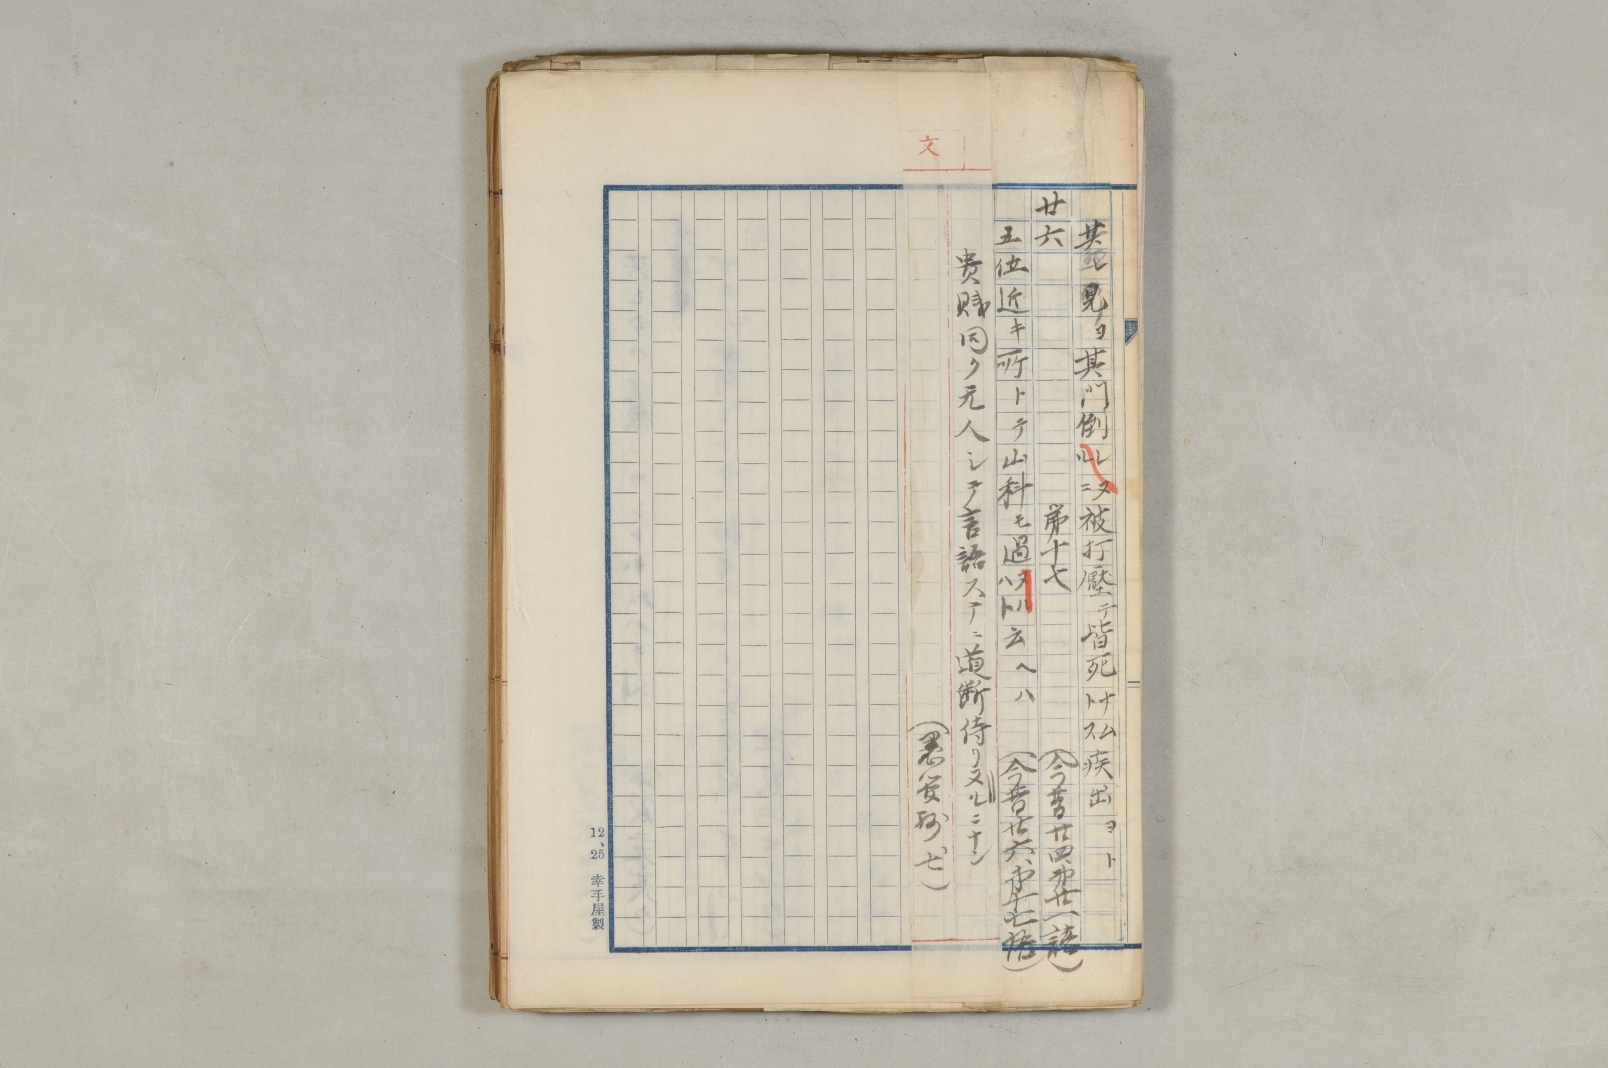 其ヲ見ヨ其門倒ルレニヌ被打壓テ皆死ナムトス疾出ヨト
(今昔廿四、第廿一語)
廿六 第十七
五位近キ所トテ山科モ過ヌルハト云ヘハ
(今昔廿六、第十七語)
貴賤同ク元人シテ言語ステニ道断侍リヌルニナン
文
12、25 幸手屋製